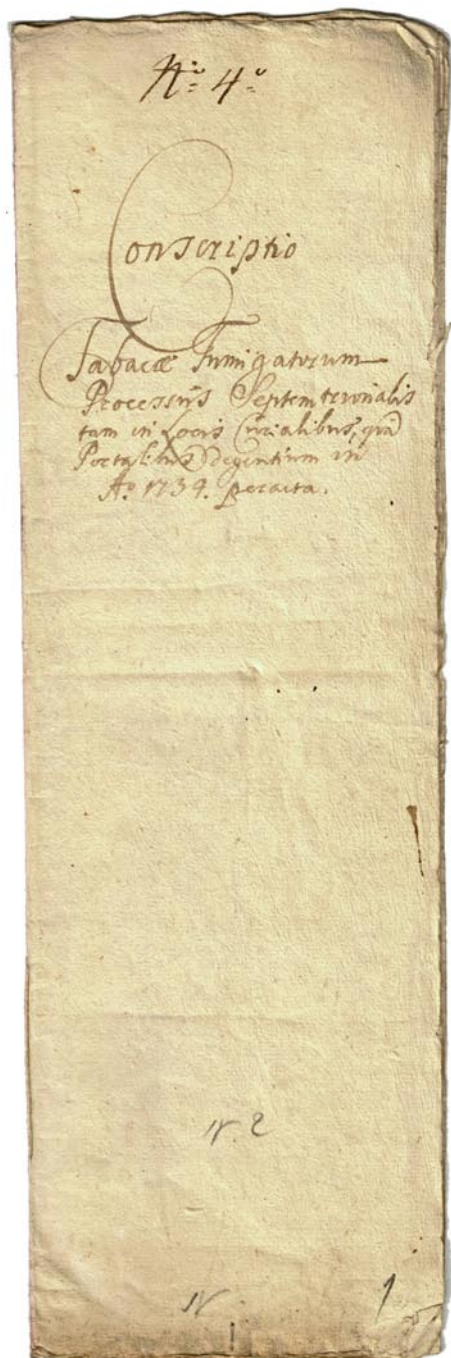 N: 4:
Conscriptio
Tabacæ Fumigatorum
Processûs Septemtrionalis
tam in Locis Curialibus, quã
Portalibus degentium in
Aô 1734. peracta.
N. 2
N
1